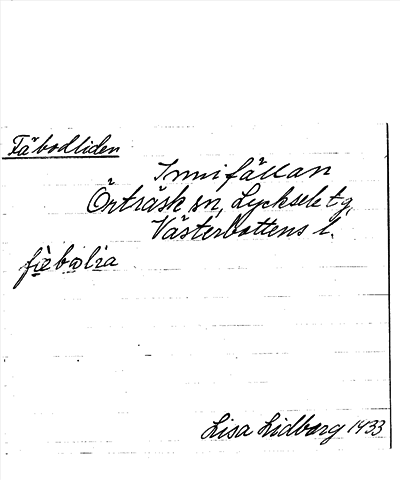 Fäbodliden
Innifällan
Örträsk sn, Lycksele tg,
Västerbottens l.
Lisa Lidberg 1933